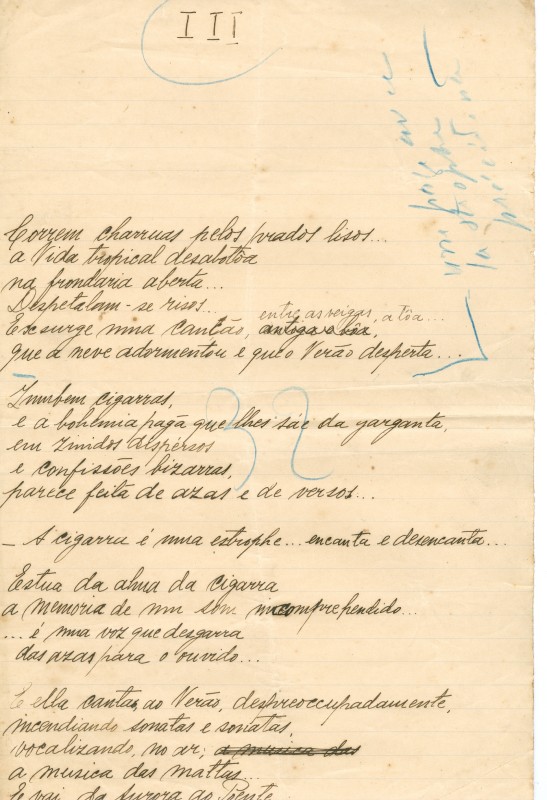 III
uma page avec
la strophe
précédente
Correm charruas pelos prados lisos...
a Vida tropical desabotôa
na frondaria aberta...
Despetalam-se risos...
entre as veigas, a tôa...
Exsurge uma canção, antiga e bôa,
que a neve adormentou e que o Verão desperta...
32
Zumbem cigarras,
e a bohemia pagã que lhes sáe da garganta,
em zinidos dispersos
e confissões bizarras,
parece feita de azas e de versos...
– A cigarra é uma estrophe... encanta e desencanta...
Estua da alma da cigarra
a memoria de um som incomprehendido...
... é uma voz que desgarra
das azas para o ouvido...
E ella canta, ao Verão, despreoccupadamente,
incendiando sonatas e sonatas,
vocalizando, no ar, a musica das
a musica das mattas...
E vai, da Aurora ao Poente